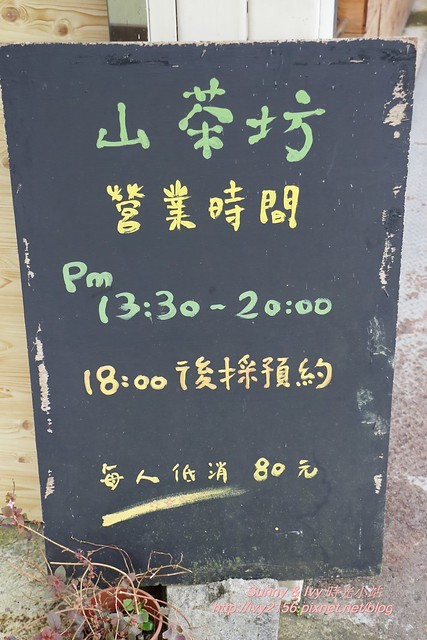 山茶坊
營業時間
Pm
13:30-20:00
18:00後採預約
每人低消 80元
Sunny & Ivy 時光小旅
http://ivy2156.pixnet.net/blog